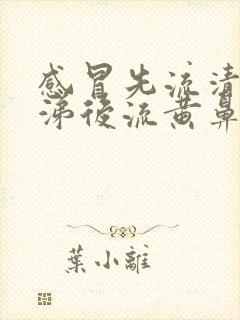 感冒先流清
涕後流黄鼻
葉小離